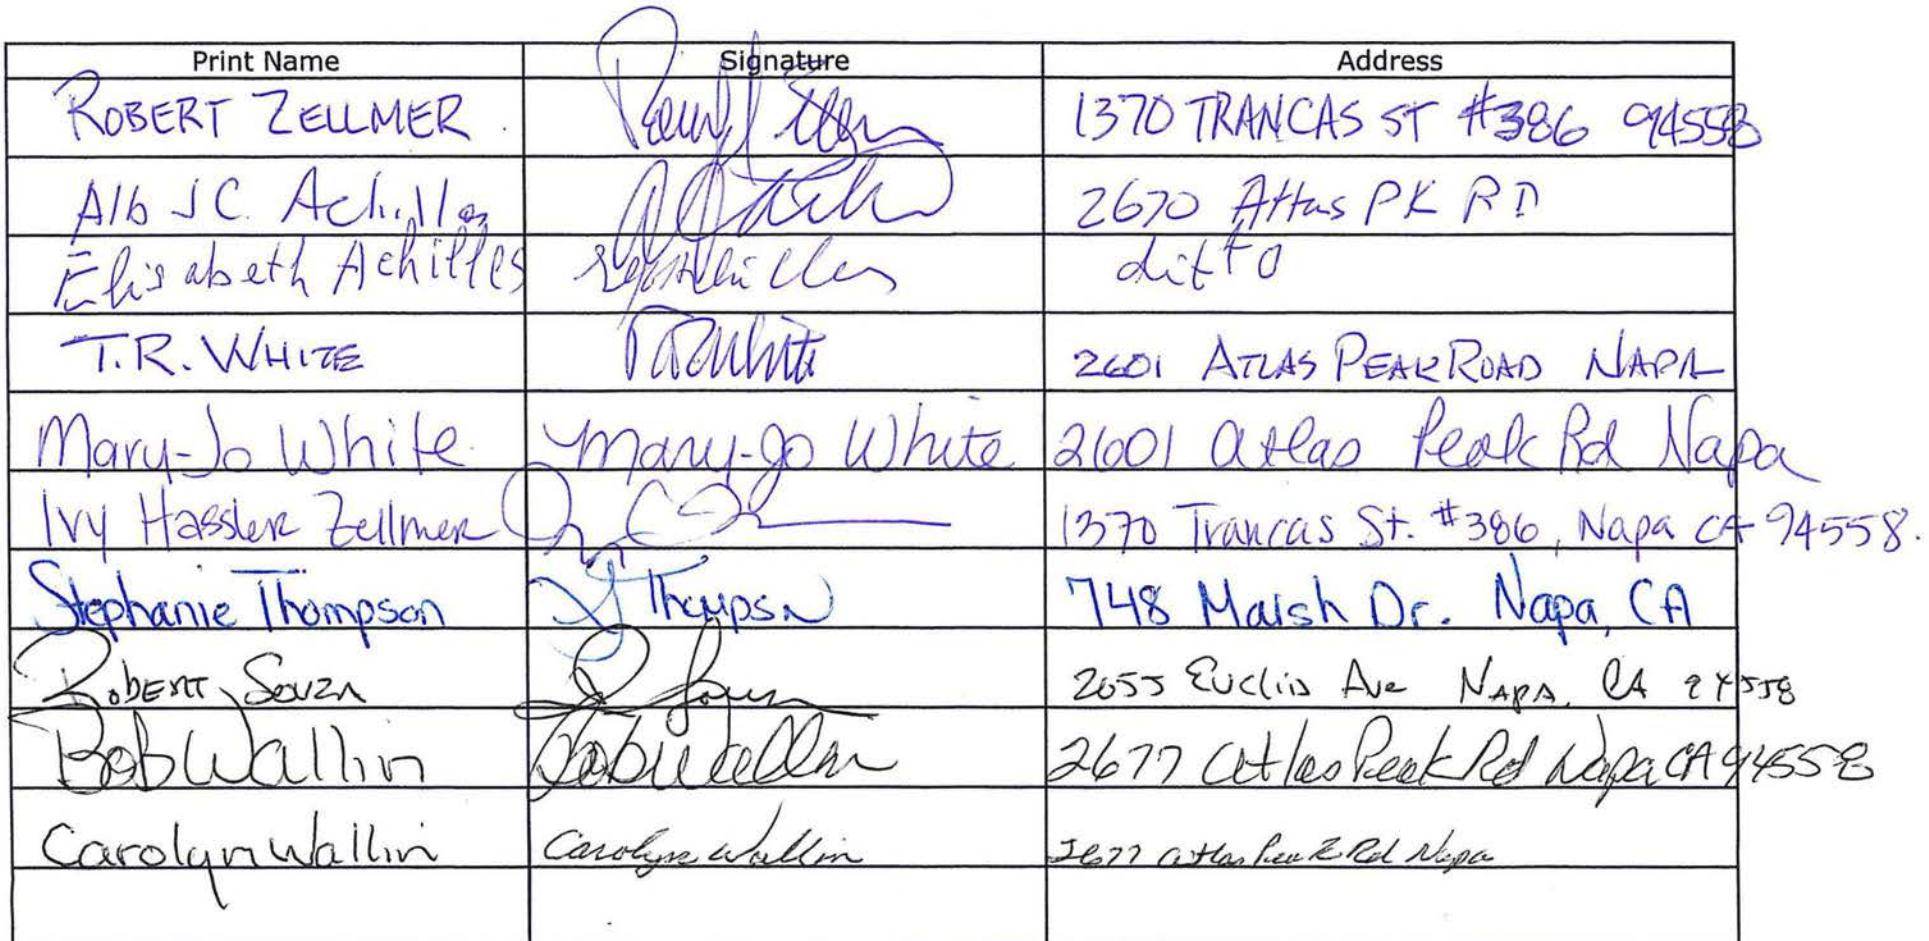 Print Name Signature Address
ROBERT ZELLMER 1370 TRANCAS ST #386 94558
Alb JC. Achilles 2670 Atlas PK RD
Elisabeth Achilles ditto
T.R. WHITE TRWhite 2601 ATLAS PEAK ROAD NAPA
Mary-Jo White Mary-Jo White 2601 Atlas Peak Rd Napa
Ivy Hassler Zellmer 1370 Trancas St. #386, Napa CA 94558.
Stephanie Thompson Thompson 748 Marsh Dr. Napa, CA
ROBERT SOUZA 2055 Euclid Ave NAPA, CA 94558
Bob Wallin Bob Wallin 2677 Atlas Peak Rd Napa CA 94558
Carolyn Wallin Carolyn Wallin 2677 Atlas Peak Rd Napa